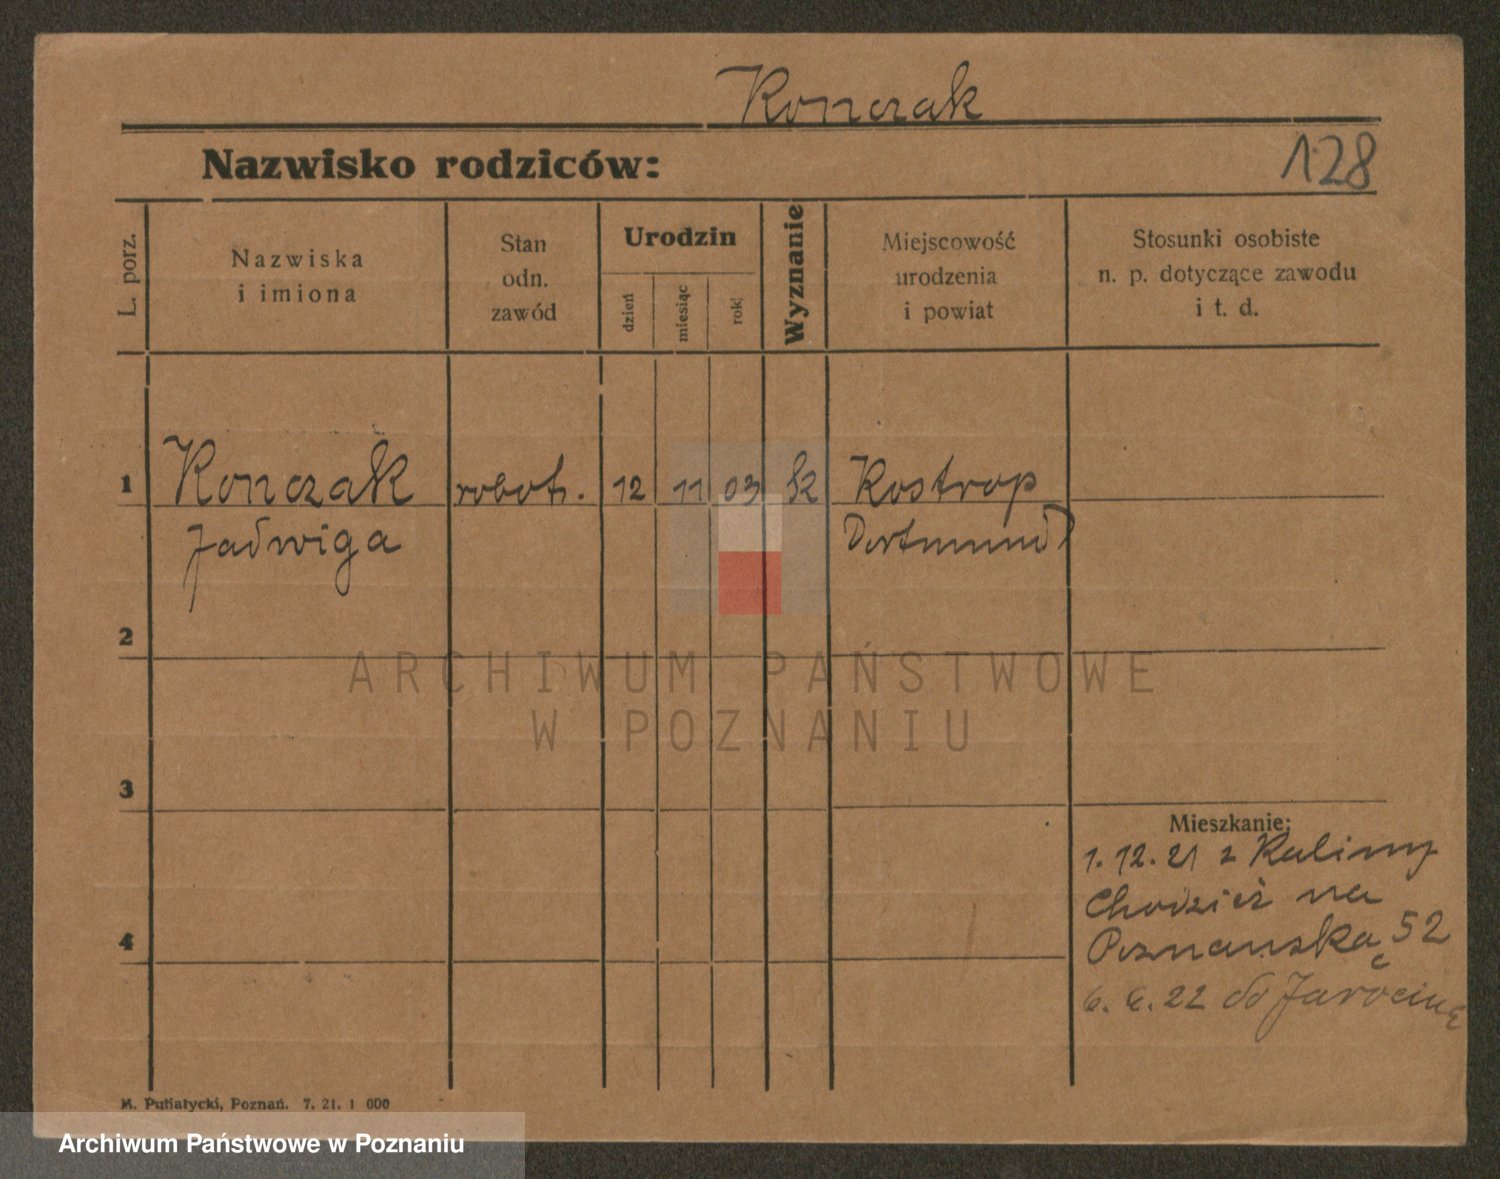 Konczak
Nazwisko rodziców:
128
L. porz.
Nazwiska
i imiona
Stan
odn.
zawód
Urodzin
dzień
miesiąc
rok
Wyznanie
Miejscowość
urodzenia
i powiat
Stosunki osobiste
n. p. dotyczące zawodu
i t. d.
1 Konczak robotn. 12 11 03 kz Kostrop
Jadwiga Dortmund
2
ARCHIWUM PAŃSTWOWE
W POZNANIU
3
Mieszkanie:
1.12.21 z Kaliny
Chodzież na
4
Poznańską 52
6. 6. 22 do Jarocina
M. Putiatycki, Poznań. 7. 21. 1 000
Archiwum Państwowe w Poznaniu